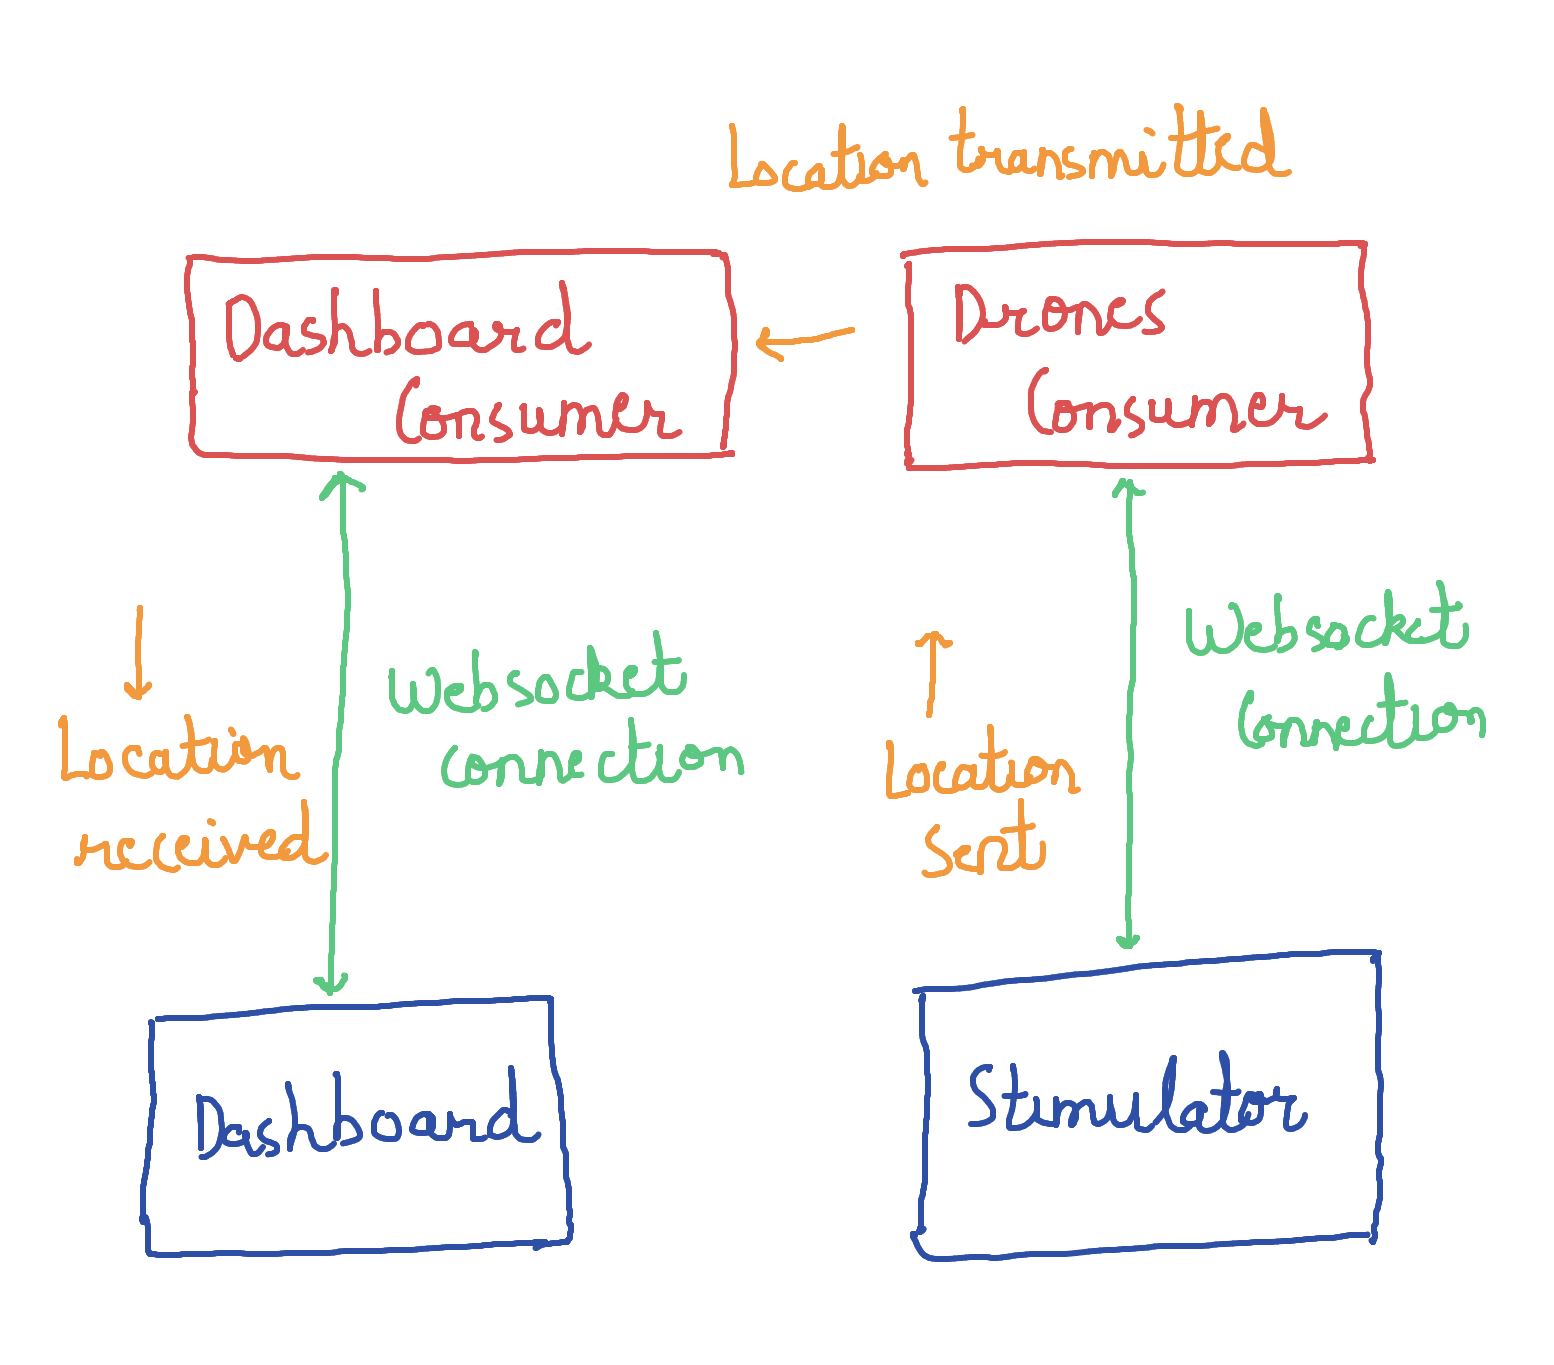 Location transmitted
Dashboard
Consumer
Drones
Consumer
Websocket
connection
Websocket
Connection
Location
received
Location
Sent
Dashboard
Stimulator